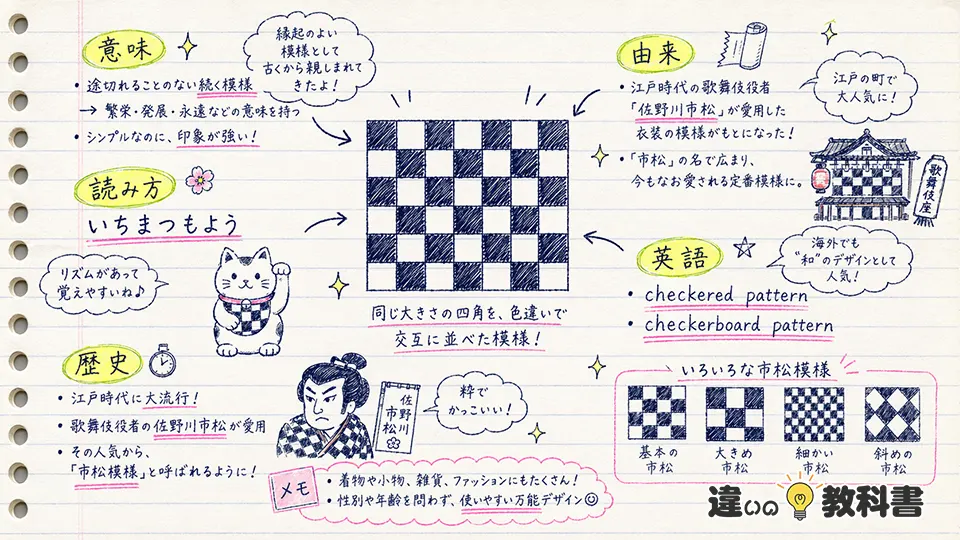 意味
・途切れることのない続く模様
→ 繁栄・発展・永遠などの意味を持つ
・シンプルなのに、印象が強い！
縁起のよい
模様として
古くから親しまれて
きたよ！
読み方
いちまつもよう
リズムがあって
覚えやすいね♪
歴史
・江戸時代に大流行！
・歌舞伎役者の佐野川市松が愛用
・その人気から、
「市松模様」と呼ばれるように！
同じ大きさの四角を、色違いで
交互に並べた模様！
佐野川
市松
粋で
かっこいい！
メモ
・着物や小物、雑貨、ファッションにもたくさん！
・性別や年齢を問わず、使いやすい万能デザイン☺
由来
・江戸時代の歌舞伎役者
「佐野川市松」が愛用した
衣装の模様がもとになった！
・「市松」の名で広まり、
今もなお愛される定番模様に。
江戸の町で
大人気に！
歌舞伎座
英語
・checkered pattern
・checkerboard pattern
海外でも
"和"のデザインとして
人気！
いろいろな市松模様
基本の
市松
大きめ
市松
細かい
市松
斜めの
市松
違いの教科書